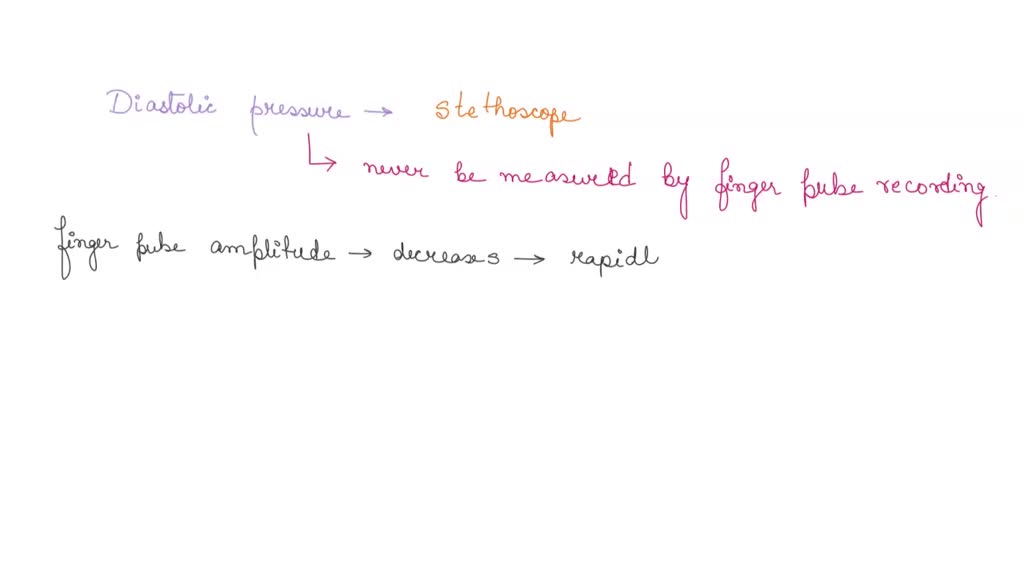 Diastolic pressure → stethoscope
↳ never be measured by finger pulse recording.
finger pulse amplitude → decreases → rapidl